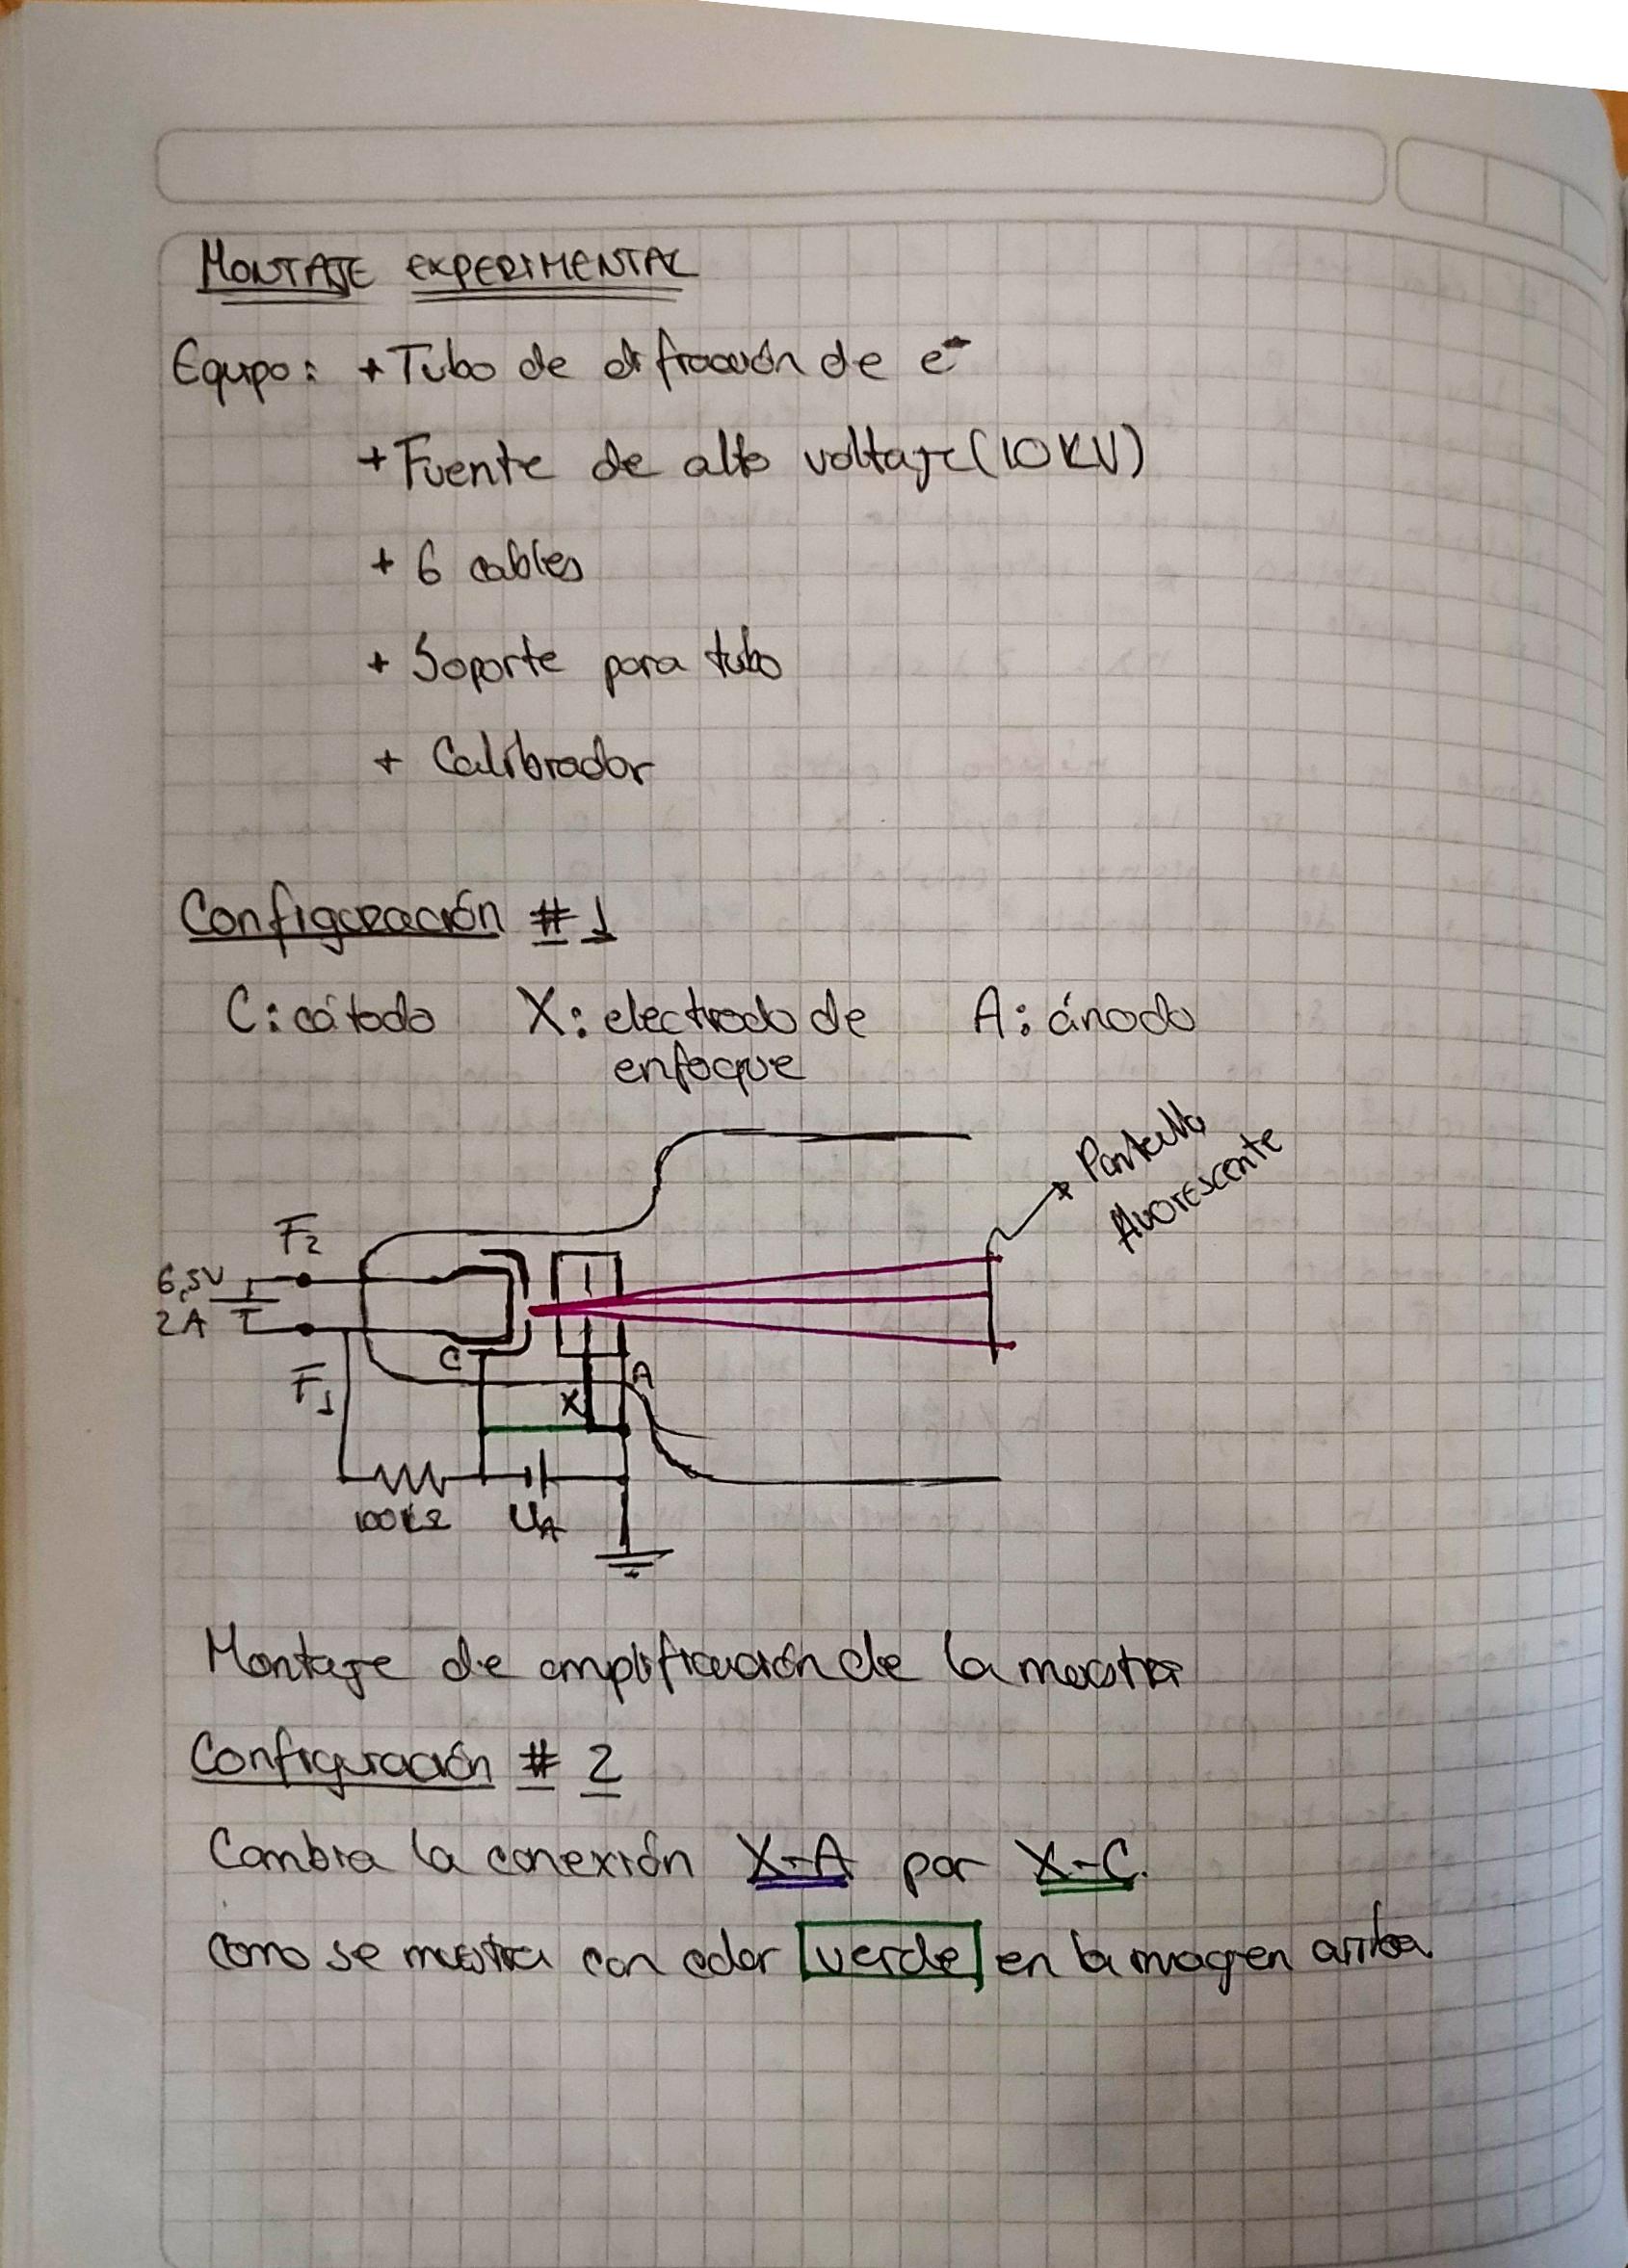 MONTAJE EXPERIMENTAL
Equipo: + Tubo de difracción de e⁻
+ Fuente de alto voltaje (10 KV)
+ 6 cables
+ Soporte para tubo
+ Calibrador
Configuración # 1
C: cátodo X: electrodo de A: ánodo
enfoque
Pantalla
fluorescente
F2
6,5V
2A
C
A
F1
X
100kΩ UA
Montaje de amplificación de la muestra
Configuración # 2
Cambia la conexión X-A por X-C.
como se muestra con color verde en la imagen arriba